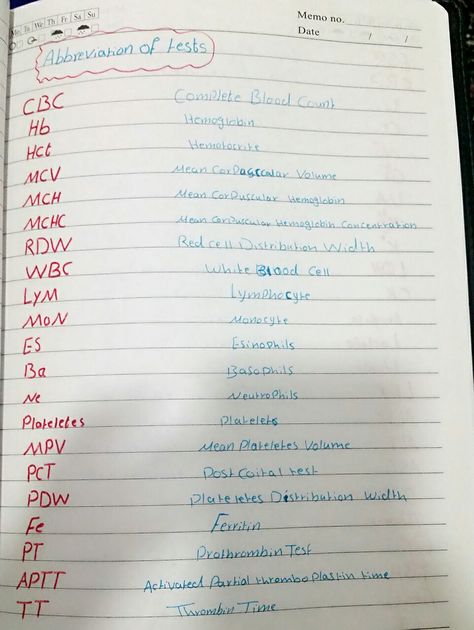 Mo Tu We Th Fr Sa Su
Memo no.
Date / /
Abbreviation of tests
CBC Complete Blood Count
Hb Hemoglobin
Hct Hematocrite
MCV Mean Corpuscular Volume
MCH Mean Corpuscular Hemoglobin
MCHC Mean Corpuscular Hemoglobin Concentration
RDW Red cell Distribution Width
WBC White Blood Cell
LYM Lymphocyte
MoN Monocyte
ES Esinophils
Ba Basophils
Ne Neutrophils
Plateletes Platelets
MPV Mean Plateletes Volume
PCT Post Coital test
PDW Plateletes Distribution Width
Fe Ferritin
PT Prothrombin Test
APTT Activated Partial thromboplastin time
TT Thrombin Time